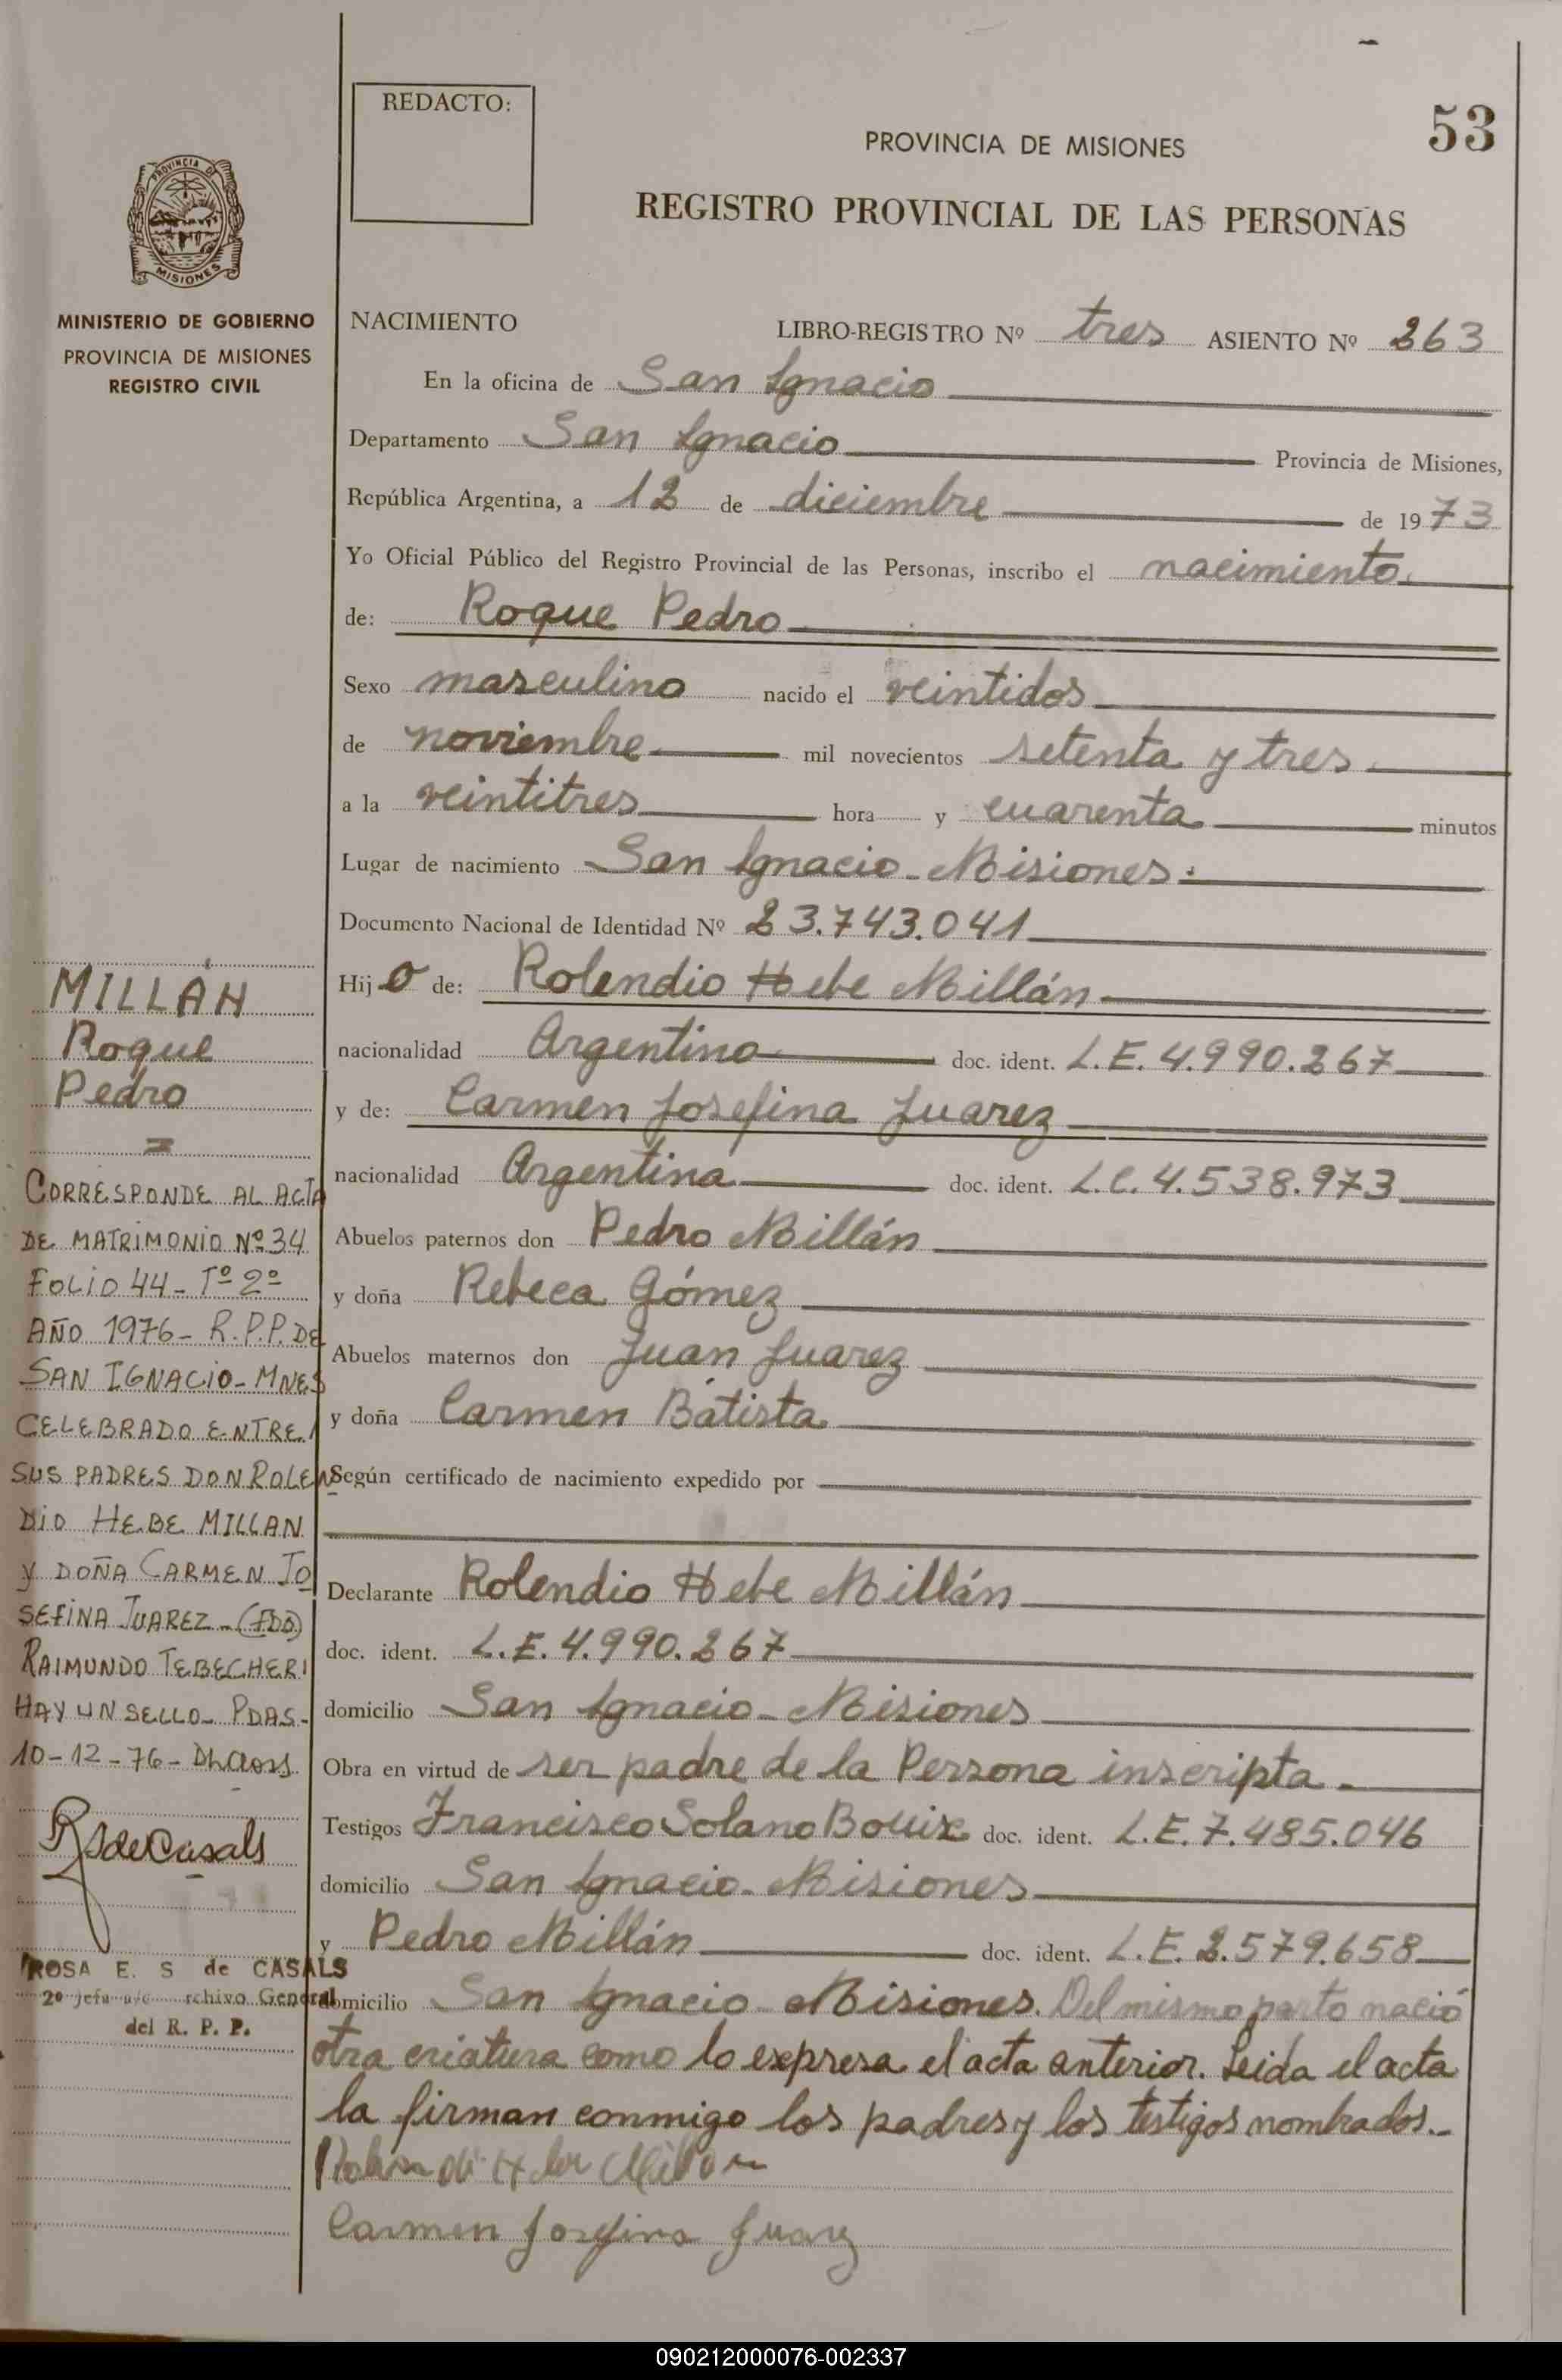 REDACTO:
53
PROVINCIA DE MISIONES
REGISTRO PROVINCIAL DE LAS PERSONAS
PROVINCIA DE
MISIONES
MINISTERIO DE GOBIERNO
PROVINCIA DE MISIONES
REGISTRO CIVIL
NACIMIENTO LIBRO-REGISTRO Nº tres ASIENTO Nº 263
En la oficina de San Ignacio
Departamento San Ignacio Provincia de Misiones,
República Argentina, a 12 de diciembre de 1973
Yo Oficial Público del Registro Provincial de las Personas, inscribo el nacimiento
de: Roque Pedro
Sexo masculino nacido el veintidos
de noviembre mil novecientos setenta y tres
a la veintitres hora y cuarenta minutos
Lugar de nacimiento San Ignacio - Misiones.
Documento Nacional de Identidad Nº 23.743.041
Hijo de: Rolendio Hebe Millán
nacionalidad Argentino doc. ident. L.E. 4.990.267
y de: Carmen Josefina Juarez
nacionalidad Argentina doc. ident. L.C. 4.538.973
Abuelos paternos don Pedro Millán
y doña Rebeca Gómez
Abuelos maternos don Juan Juarez
y doña Carmen Batista
Según certificado de nacimiento expedido por
Declarante Rolendio Hebe Millán
doc. ident. L.E. 4.990.267
domicilio San Ignacio - Misiones
Obra en virtud de ser padre de la Persona inscripta.
Testigos Francisco Solano doc. ident. L.E. 7.485.046
domicilio San Ignacio - Misiones
y Pedro Millán doc. ident. L.E. 2.579.658
domicilio San Ignacio - Misiones. Del mismo parto nació
otra criatura como lo expresa el acta anterior. Leida el acta
la firman conmigo los padres y los testigos nombrados.-
Carmen Josefina Juarez
MILLÁN
Roque
Pedro
=
CORRESPONDE AL ACTA
DE MATRIMONIO Nº 34
FOLIO 44 - Tº 2º
AÑO 1976 - R.P.P. DE
SAN IGNACIO - MNES
CELEBRADO ENTRE
SUS PADRES DON ROLEN
DIO HEBE MILLAN
Y DOÑA CARMEN JO
SEFINA JUAREZ - (FDO)
RAIMUNDO TEBECHERI
HAY UN SELLO - PDAS -
10-12-76 -
RSdeCasals
ROSA E. S de CASALS
2º Jefe a/c rchivo General
del R. P. P.
090212000076-002337